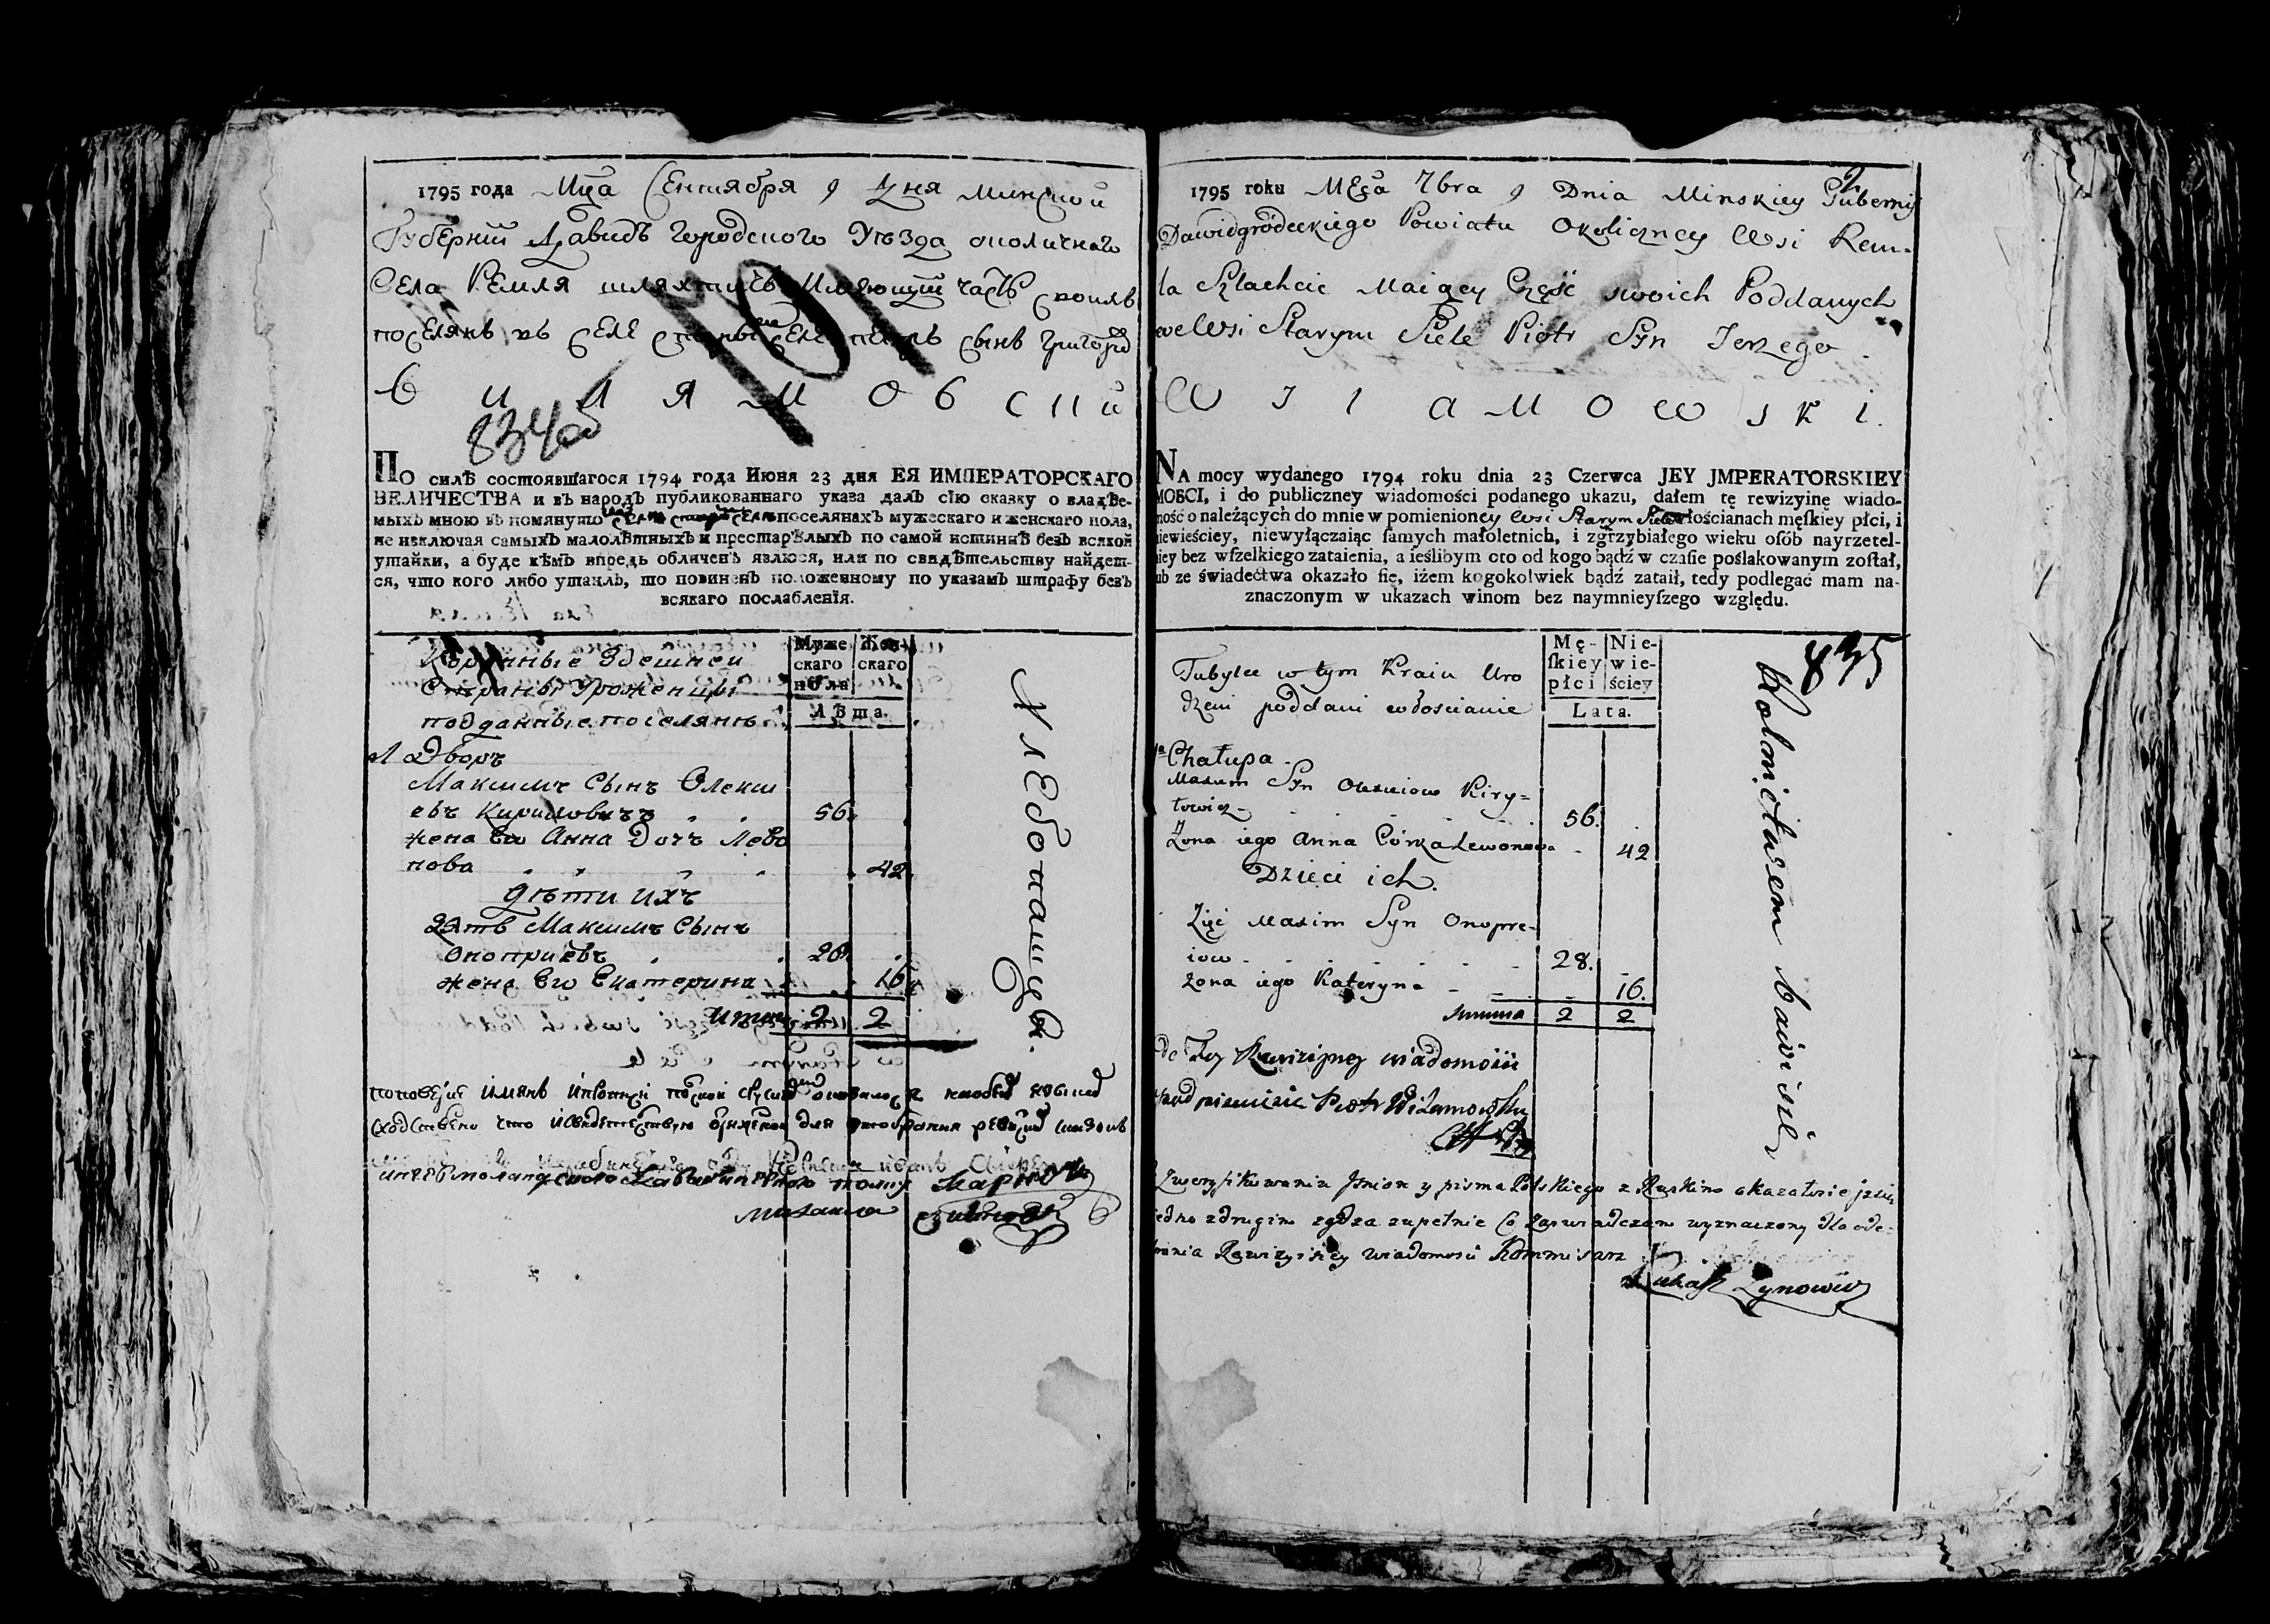 1795 года Мца Сентября 9 дня минской
Губерніи Давидъ городского Уѣзда околичнаго
Села Ремля шляхтичъ Имѣющій часть своихъ
поселянъ въ селе старымъ селе петръ сынъ григорія
Вилямовскій
701
834 об
По силѣ состоявшагося 1794 года Июня 23 дня ЕЯ ИМПЕРАТОРСКАГО
ВЕЛИЧЕСТВА и въ народъ публикованнаго указа далъ сію сказку о владѣе-
мыхъ мною въ помянуто селѣ поселянахъ мужескаго и женскаго пола,
не исключая самыхъ малолѣтныхъ и престарѣлыхъ по самой истиннѣ безъ всякой
утайки, а буде кѣмъ впредь обличенъ явлюся, или по свидѣтельству найдет-
ся, что кого либо утаилъ, то повиненъ положенному по указамъ штрафу безъ
всякаго послабленія.
Коренные Здешней
Страны Уроженцы
подданные поселяне
Мужескаго пола
Женскаго
Лѣта.
1 Дворъ
Максимъ Сынъ Олекси
евъ Кириловичъ 56.
жена Ево Анна Дочъ Лево
нова 42
дѣти ихъ
Зять Максимъ Сынъ
Оноприевъ 28.
жена Ево Екатерина 16
Итого 2 2
Хлебопашцы.
2
1795 roku MEca 7bra 9 Dnia Minskiey Gubernij
Dawidgródeckiego Powiatu Okoliczney Wsi Rem-
la Szlachcic Maiący Część swoich Poddanych
we Wsi Starym Siele Piotr Syn Jerzego
Wilamowski.
NA mocy wydanego 1794 roku dnia 23 Czerwca JEY JMPERATORSKIEY
MOŚCI, i do publiczney wiadomości podanego ukazu, dałem tę rewizyinę wiado-
mość o należących do mnie w pomienioney Wsi Starym Siele włościanach męſkiey płci, i
niewieściey, niewyłączaiąc ſamych małoletnich, i zgrzybiałego wieku oſób nayrzetel-
niey bez wſzelkiego zataienia, a ieślibym oto od kogo bądź w czaſie poślakowanym zoſtał,
lub ze świadectwa okazało ſię, iżem kogokolwiek bądź zataił, tedy podlegać mam na-
znaczonym w ukazach winom bez naymnieyſzego względu.
835
Tubylce w tym Kraiu Uro
dzeni poddani włościanie
Męſkiey płci
Niewieściey
Lata.
1a Chałupa.
Maxim Syn Olexieiow Kiry-
łowicz 56.
Żona iego Anna Córka Lewonowa 42
Dzieci ich.
Zięć Maxim Syn Onopre-
iow 28.
żona iego Kateryna 16.
Summa 2 2
do Tey Rewizijney wiadomości
podpisuie Piotr Wilamowski
Rolnictwem bawisię
Zweryfikowania Jmion y pisma Polskiego z Ruskim okazałosie jż się
jedno zdrugim zgadza zupełnie Co zaświadczam wyznaczony dla ode-
brania Rewizyiney wiadomości Kommisarz
Łukasz Zynowicz